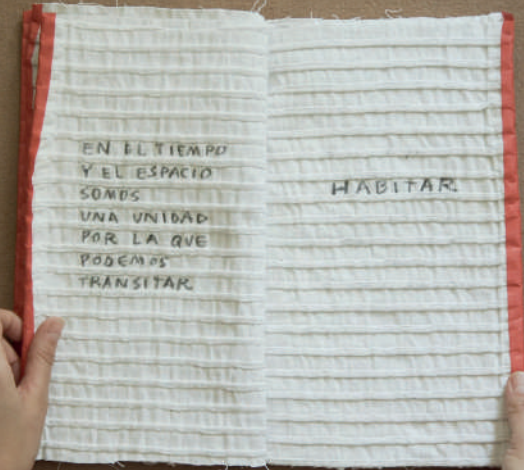 EN EL TIEMPO
Y EL ESPACIO
SOMOS
UNA UNIDAD
POR LA QUE
PODEMOS
TRANSITAR
HABITAR